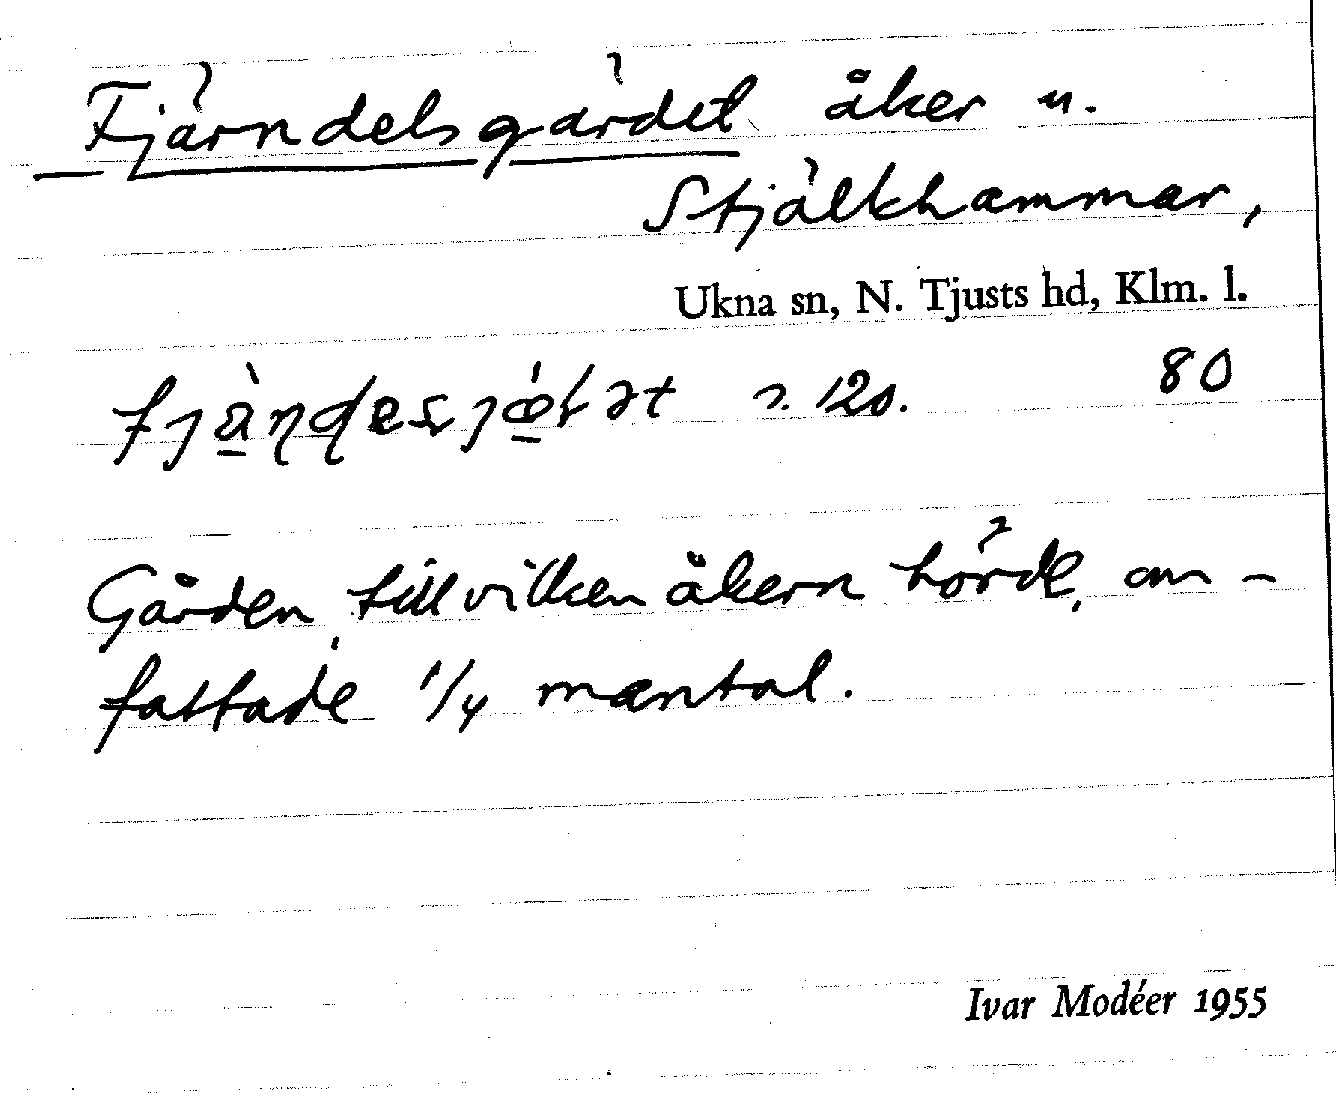 Fjärndelsgärdet åker u.
Stjälkhammar,
Ukna sn, N. Tjusts hd, Klm. l.
80
Gården, till vilken åkern hörde, om-
fattade 1/4 mantal.
Ivar Modéer 1955